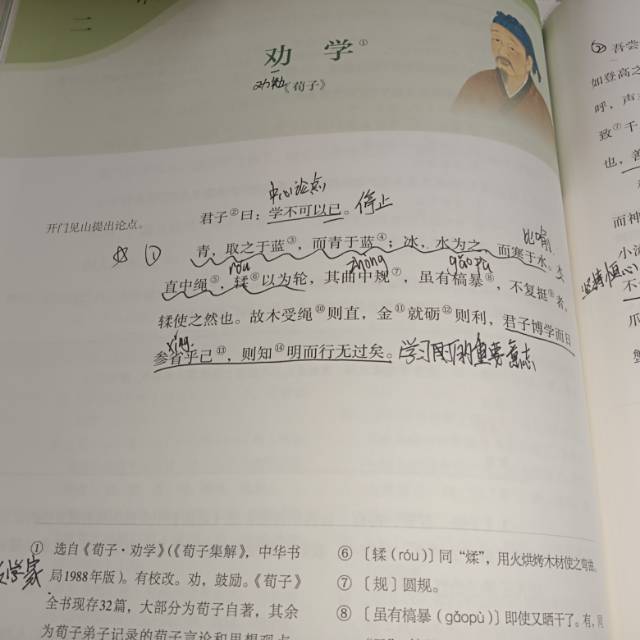 二
劝学①
劝勉
《荀子》
中心论点
开门见山提出论点。
君子②曰：学不可以已。
停止
①
比喻
青，取之于蓝③，而青于蓝④；冰，水为之，而寒于水。木
róu
zhòng
gǎo pù
直中绳⑤，𫐓⑥以为轮，其曲中规⑦，虽有槁暴⑧，不复挺⑨者，
𫐓使之然也。故木受绳⑩则直，金⑪就砺⑫则利，君子博学而日
xǐng
参省乎己⑬，则知⑭明而行无过矣。
学习的重要意志
① 选自《荀子·劝学》（《荀子集解》，中华书
局1988年版）。有校改。劝，鼓励。《荀子》
全书现存32篇，大部分为荀子自著，其余
为荀子弟子记录的荀子言论和思想观点
学家
⑥〔𫐓（róu）〕同“煣”，用火烘烤木材使之弯曲。
⑦〔规〕圆规。
⑧〔虽有槁暴（gǎopù）〕即使又晒干了。有，同
② 吾尝
如登高之
呼，声
致⑦千
也，善
而神
小流
坚持恒心
不
爪
蟹